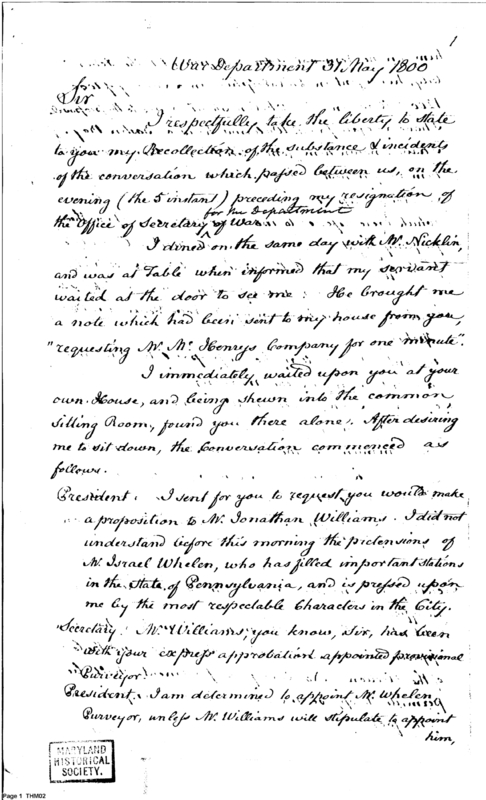 1
War Department 31 May 1800
Sir
I respectfully take the liberty, to state
to you my Recollection of the substance & incidents
of the conversation which passed between us, on the
evening (the 5 instant) preceding my resignation of
for the Department
the Office of Secretary of War.
I dined on the same day with Mr. Nicklin,
and was at Table when informed that my servant
waited at the door to see me: He brought me
a note which had been sent to my house from you,
"requesting Mr. Mc. Henrys Company for one minute".
I immediately waited upon you at your
own House, and being shewn into the common
sitting Room, found you there alone. After desiring
me to sit down, the Conversation commenced as
follows.
President. I sent for you to request you would make
a proposition to Mr. Jonathan Williams. I did not
understand before this morning the pretensions of
Mr. Israel Whelen, who has filled important stations
in the State of Pennsylvania, and is pressed upon
me by the most respectable Characters in the City.
Secretary. Mr. Williams, you know, Sir, has been
with your express approbation appointed provisional
Purveyor.
President. I am determined to appoint Mr. Whelen
Purveyor, unless Mr. Williams will stipulate to appoint
him,
MARYLAND
HISTORICAL
SOCIETY.
Page 1 THM02